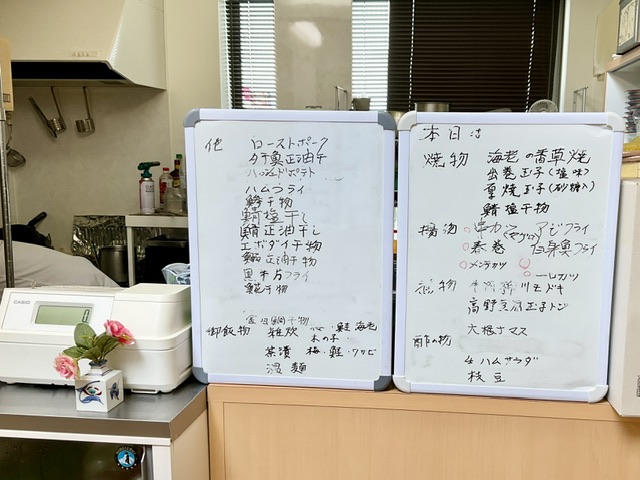 他 ローストポーク
タチ魚正油干
ハッシュドポテト
ハムフライ
鯵干物
鯖塩干し
鯖正油干し
エボダイ干物
正油干物
黒 フライ
干物
金目鯛干物
御飯物 雑炊 鮭 海老
木の子
茶漬 梅、鮭、ワサビ
温麺
CASIO
本日は
焼物 海老の香草焼
出巻玉子(塩味)
厚焼玉子(砂糖入)
鯖塩干物
揚物 串カツ アジフライ
春巻 白身魚フライ
メンチカツ
ヒレカツ
煮物
高野豆腐玉子トジ
酢の物 大根ナマス
生ハムサラダ
枝豆